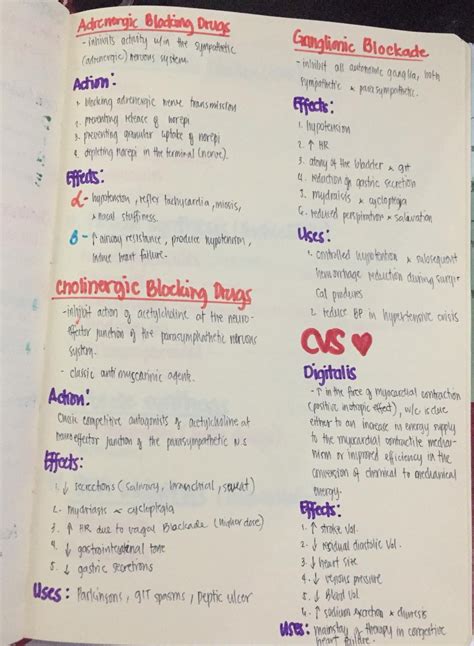 Adrenergic Blocking Drugs
- inhibits activity w/in the sympathetic
(adrenergic) nervous system.
Action:
1. blocking adrenergic nerve transmission
2. preventing release of norepi
3. preventing granular uptake of norepi
4. depleting norepi in the terminal (nerve).
Effects:
α - hypotension, reflex tachycardia, miosis,
& nasal stuffiness.
β - ↑ airway resistance, produce hypotension,
induce heart failure.
Cholinergic Blocking Drugs
- inhibit action of acetylcholine at the neuro-
effector junction of the parasymphathetic nervous
system.
- classic antimuscarinic agents.
Action:
competitive antagonists of acetylcholine at
neuroeffector junction of the parasympathetic N.S
Effects:
1. ↓ secretions (salivary, bronchial, sweat)
2. mydriasis & cycloplegia
3. ↑ HR due to vagal Blockade (higher dose)
4. ↓ gastrointestinal tone
5. ↓ gastric secretions
Uses: Parkinsons, GIT spasms, peptic ulcer
Ganglionic Blockade
- inhibit all autonomic ganglia, both
sympathetic & parasympathetic.
Effects:
1. hypotension
2. ↑ HR
3. atony of the bladder & GIT
4. reduction of gastric secretion
5. mydraisis & cycloplegia
6. reduced perspiration & salivation
Uses:
1. controlled hypotention & subsequent
hemorrhage reduction during surgi-
cal produres
2. reduce BP in hypertensive crisis
CVS ♥
Digitalis
- ↑ in the force of myocardial contraction
(positive inotropic effect), w/c is due
either to an increase in energy supply
to the myocardial contractile mecha-
nism or improved efficiency in the
conversion of chemical to mechanical
energy.
Effects:
1. ↑ stroke Vol.
2. ↓ residual diastolic Vol.
3. ↓ heart size
4. ↓ venous pressure
5. ↓ Blood Vol
6. ↑ sodium excretion & diuresis
Uses: mainstay of therapy in congestive
heart failure.